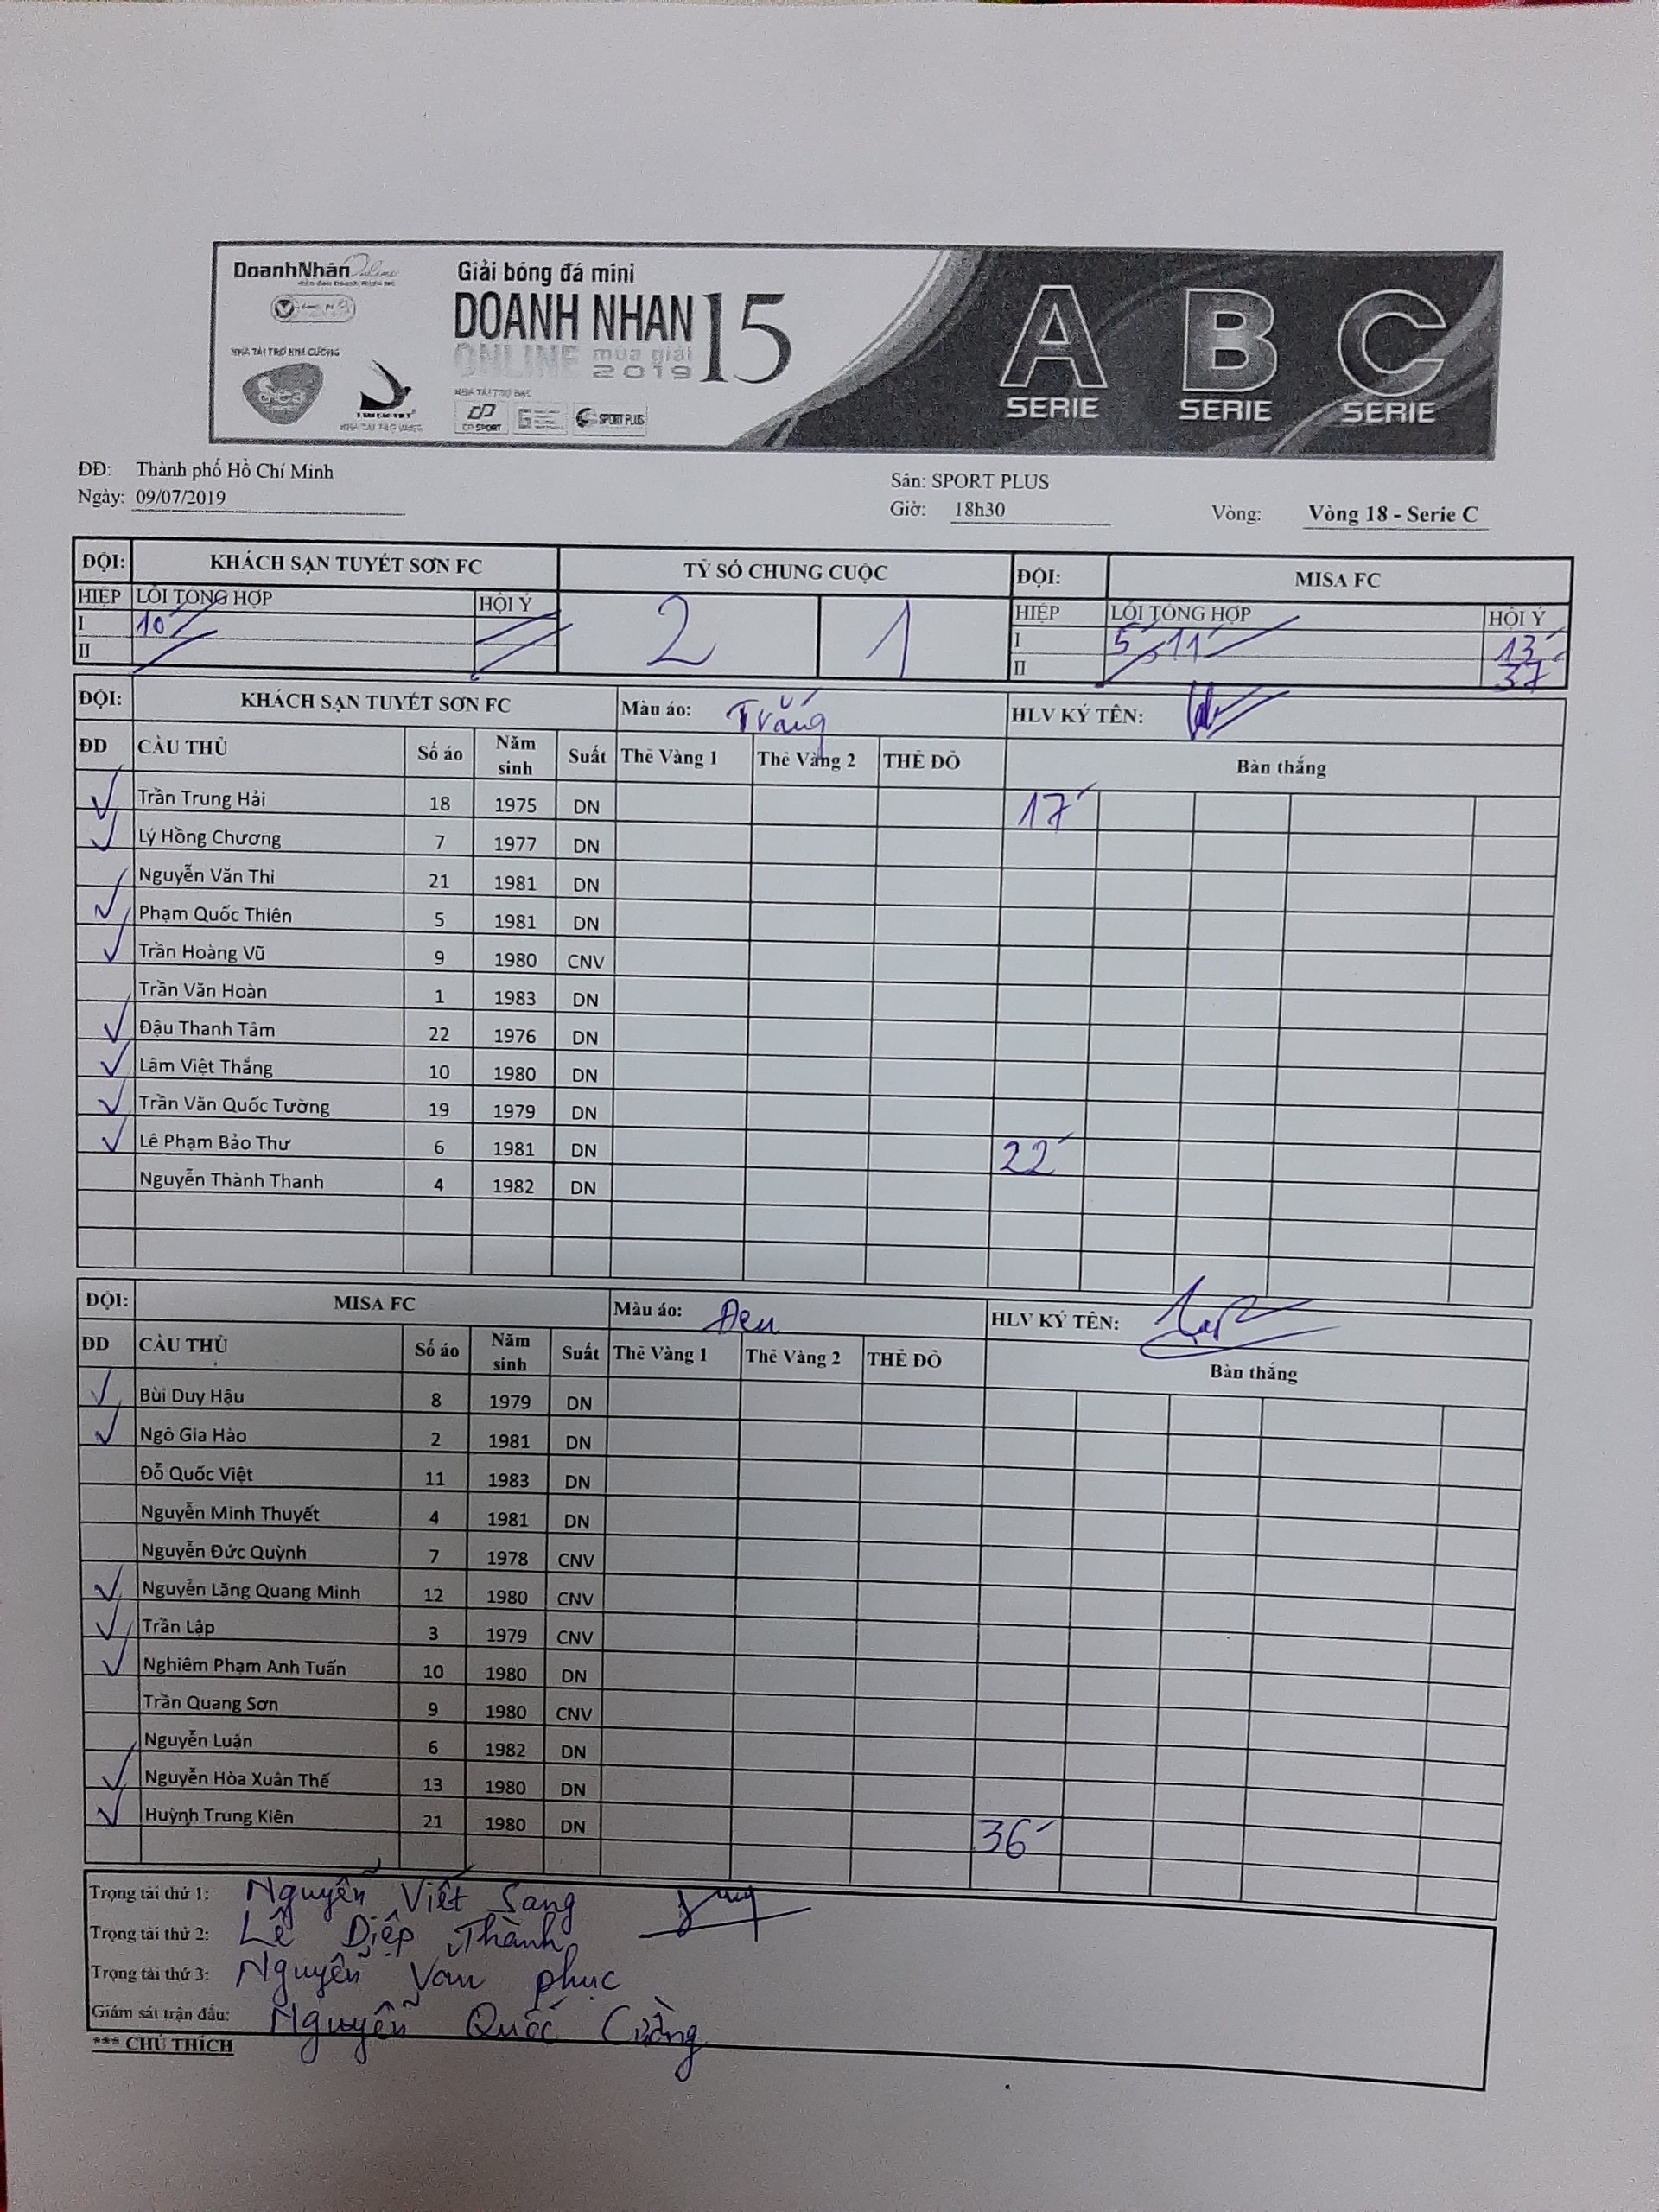 DoanhNhân Online
Giải bóng đá mini
DOANH NHAN 15
ONLINE mùa giải
2019
NHÀ TÀI TRỢ KIM CƯƠNG
Sea
NHÀ TÀI TRỢ VÀNG
NHÀ TÀI TRỢ BẠC
CP SPORT
SPORT PLUS
A B C
SERIE SERIE SERIE
ĐĐ: Thành phố Hồ Chí Minh
Sân: SPORT PLUS
Ngày: 09/07/2019 Giờ: 18h30 Vòng: Vòng 18 - Serie C
ĐỘI: KHÁCH SẠN TUYẾT SƠN FC TỶ SỐ CHUNG CUỘC ĐỘI: MISA FC
HIỆP LỖI TỔNG HỢP HỘI Ý 2 1 HIỆP LỖI TỔNG HỢP HỘI Ý
I 10' I 5' 11' 13'
II II 37'
ĐỘI: KHÁCH SẠN TUYẾT SƠN FC Màu áo: Trắng HLV KÝ TÊN:
ĐD CẦU THỦ Số áo Năm sinh Suất Thẻ Vàng 1 Thẻ Vàng 2 THẺ ĐỎ Bàn thắng
Trần Trung Hải 18 1975 DN 17'
Lý Hồng Chương 7 1977 DN
Nguyễn Văn Thi 21 1981 DN
Phạm Quốc Thiên 5 1981 DN
Trần Hoàng Vũ 9 1980 CNV
Trần Văn Hoàn 1 1983 DN
Đậu Thanh Tâm 22 1976 DN
Lâm Việt Thắng 10 1980 DN
Trần Văn Quốc Tường 19 1979 DN
Lê Phạm Bảo Thư 6 1981 DN 22'
Nguyễn Thành Thanh 4 1982 DN
ĐỘI: MISA FC Màu áo: Đen HLV KÝ TÊN:
ĐD CẦU THỦ Số áo Năm sinh Suất Thẻ Vàng 1 Thẻ Vàng 2 THẺ ĐỎ Bàn thắng
Bùi Duy Hậu 8 1979 DN
Ngô Gia Hào 2 1981 DN
Đỗ Quốc Việt 11 1983 DN
Nguyễn Minh Thuyết 4 1981 DN
Nguyễn Đức Quỳnh 7 1978 CNV
Nguyễn Lăng Quang Minh 12 1980 CNV
Trần Lập 3 1979 CNV
Nghiêm Phạm Anh Tuấn 10 1980 DN
Trần Quang Sơn 9 1980 CNV
Nguyễn Luận 6 1982 DN
Nguyễn Hòa Xuân Thế 13 1980 DN
Huỳnh Trung Kiên 21 1980 DN 36'
Trọng tài thứ 1: Nguyễn Viết Sang
Trọng tài thứ 2: Lê Diệp Thành
Trọng tài thứ 3: Nguyễn Van phục
Giám sát trận đấu: Nguyễn Quốc Cường
*** CHÚ THÍCH